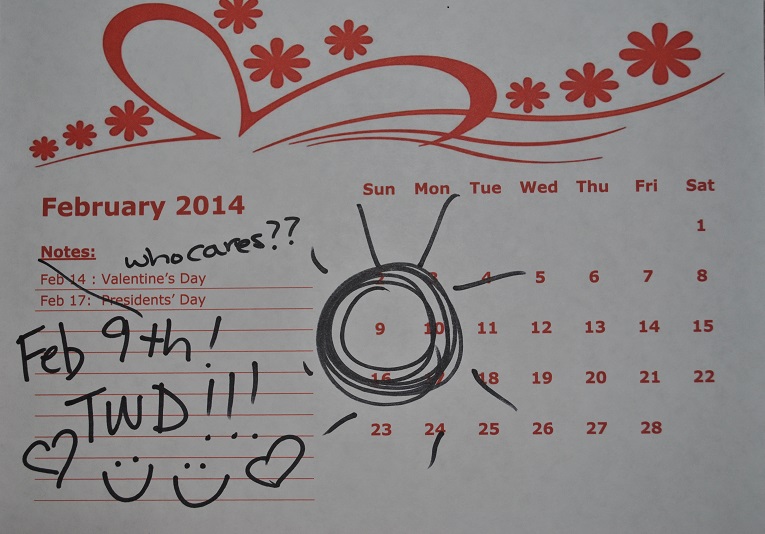 Sun Mon Tue Wed Thu Fri Sat
February 2014
1
who cares??
Notes:
Feb 14 : Valentine's Day
2 3 4 5 6 7 8
Feb 17: Presidents' Day
9 10 11 12 13 14 15
Feb 9th!
16 17 18 19 20 21 22
TWD!!!
23 24 25 26 27 28